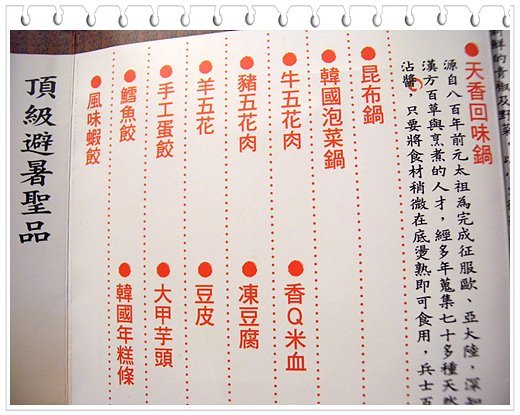 天香回味鍋
源自八百年前元太祖為完成征服歐、亞大陸，深知
漢方百草與烹煮的人才，經多年蒐集七十多種天然
沾醬，只要將食材稍微在底燙熟即可食用，兵士百
昆布鍋
韓國泡菜鍋
牛五花肉
香Q米血
豬五花肉
凍豆腐
羊五花
豆皮
手工蛋餃
大甲芋頭
鱈魚餃
韓國年糕條
風味蝦餃
頂級避暑聖品